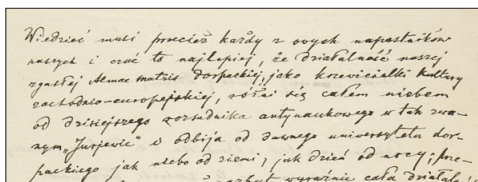 Wiedzieć musi przecież każdy z owych napastników
naszych i czuć to najlepiej, że działalność naszej
zgasłej Almae matris dorpackiej, jako krzewicielki kultury
zachodnio-europejskiej, różni się całem niebem
od dzisiejszego rozsadnika antynaukowego w tak zwa-
nym „Jurjewie” i odbija od dawnego uniwersytetu dor-
packiego jak niebo od ziemi, jak dzień od nocy; prze-
wyraźnie cała działal